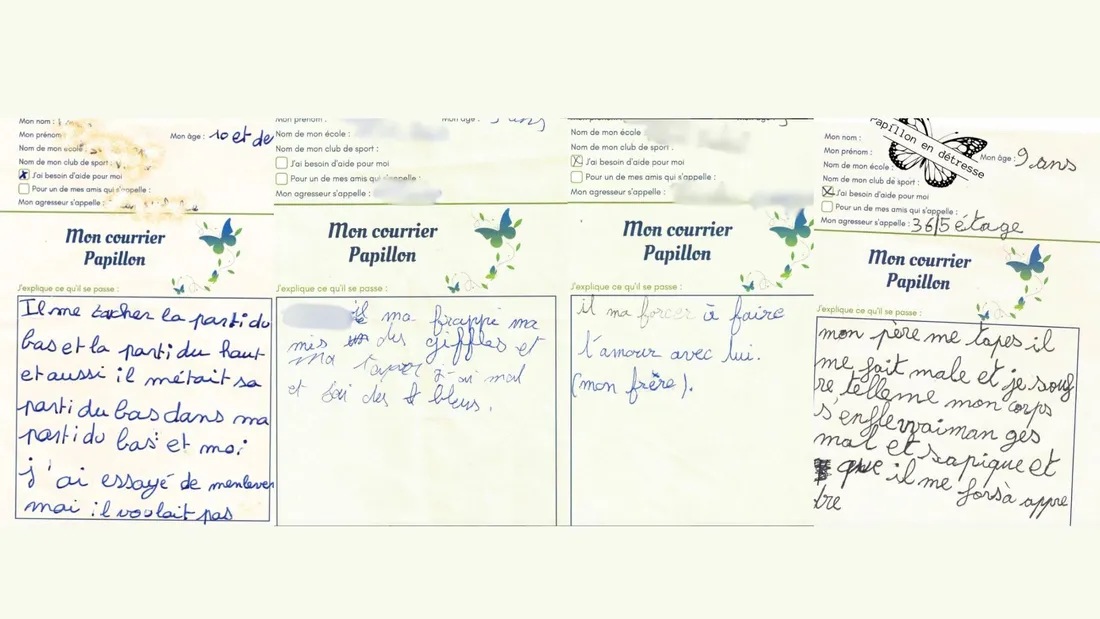 Mon nom :
Mon prénom
Mon âge : 10 et de
Nom de mon école :
Nom de mon club de sport :
J'ai besoin d'aide pour moi
Pour un de mes amis qui s'appelle :
Mon agresseur s'appelle :
Mon courrier
Papillon
J'explique ce qu'il se passe :
Il me la parti du
bas et la parti du haut
et aussi il métait sa
parti du bas dans ma
parti du bas et moi
j'ai essayé de menlever
mai il voulait pas
Mon prénom :
Mon âge : ans
Nom de mon école :
Nom de mon club de sport :
J'ai besoin d'aide pour moi
Pour un de mes amis qui s'appelle :
Mon agresseur s'appelle :
Mon courrier
Papillon
J'explique ce qu'il se passe :
il ma frappé ma
mis des giffles et
ma taper j'ai mal
et jai des bleus.
Nom de mon école
Nom de mon club de sport :
J'ai besoin d'aide pour moi
Pour un de mes amis qui s'appelle :
Mon agresseur s'appelle :
Mon courrier
Papillon
J'explique ce qu'il se passe :
il ma forcer à faire
l'amour avec lui.
(mon frère).
Papillon en détresse
Mon nom :
Mon prénom :
Mon âge : 9 ans
Nom de mon école
Nom de mon club de sport :
J'ai besoin d'aide pour moi
Pour un de mes amis qui s'appelle :
Mon agresseur s'appelle : 36/5 étage
Mon courrier
Papillon
J'explique ce qu'il se passe :
mon père me tapes il
me fait male et je souf
re telleme mon corps
s'enfle vraiman ges
mal et sapique et
que il me forsà appre
dre